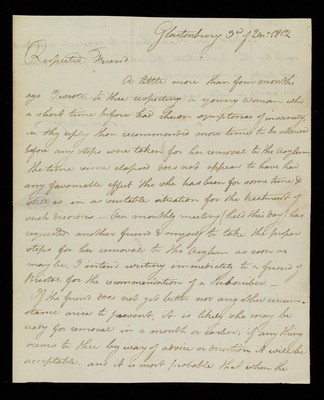 Glastonbury 3d of 2mo: 1802
Respected Friend
A little more than four months
ago I wrote to thee respecting a young woman who
a short time before had shewn symptoms of insanity,
in thy reply thou recommended more time to be allowed
before any steps were taken for her removal to the Asylum
the time since elapsed does not appear to have had
any favourable effect tho' she has been for some time &
still is in a suitable situation for the treatment of
such disorders — Our monthly meeting (held this day) has
requested another friend & myself to take the proper
steps for her removal to the Asylum as soon as
may be, I intend writing immediately to a friend of
Bristol for the recommendation of a Subscriber —
If the friend does not get better nor any other circum=
stance arise to prevent, it is likely she may be
ready for removal in a month or earlier, if any thing
occurs to thee by way of advice or direction it will be
acceptable, and it is most probable that when the